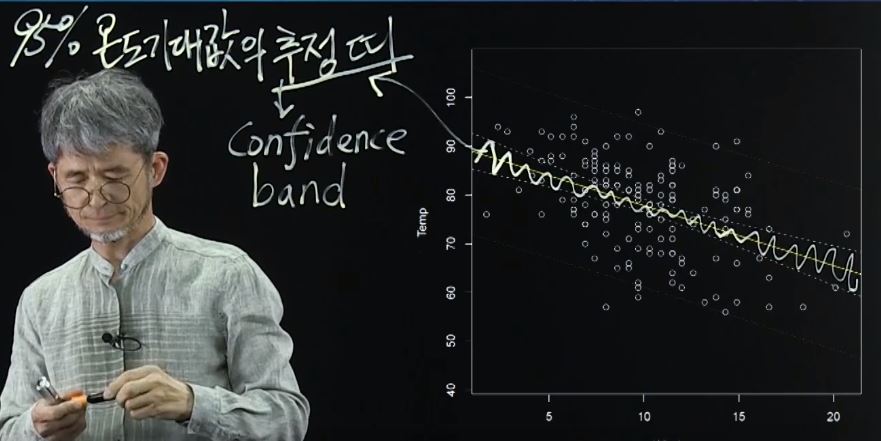 95% 온도기대값의 추정 띠
Confidence
band
Temp
100
90
80
70
60
50
40
5
10
15
20